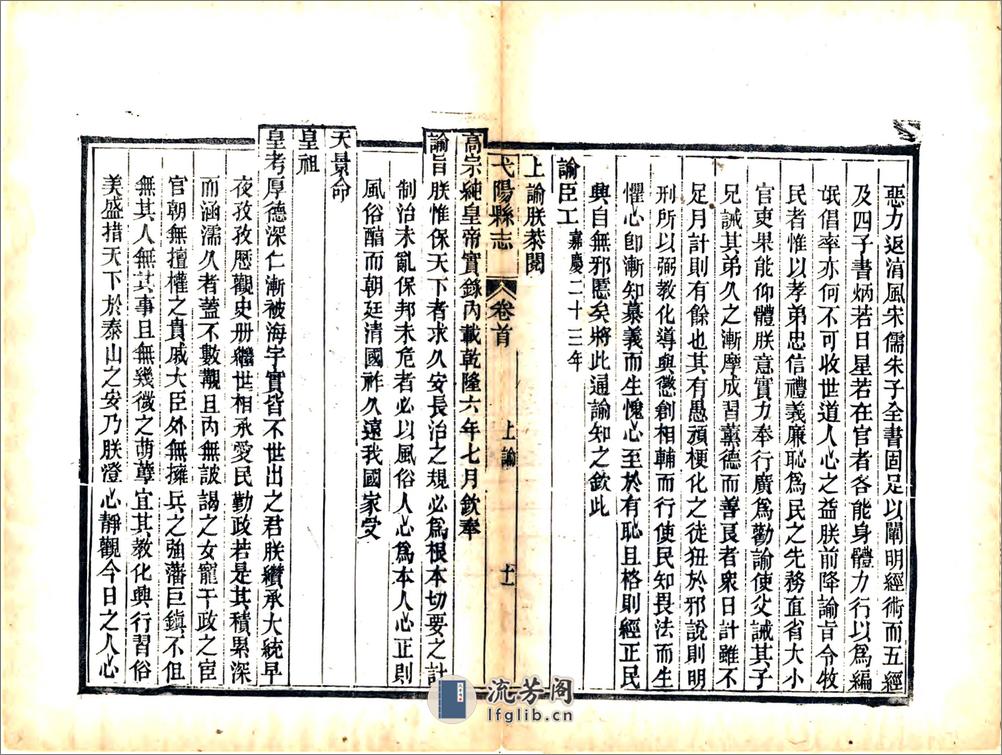 惡力返淯風宋儒朱子全書固足以闡明經術而五經
及四子書炳若日星若在官者各能身體力行以爲編
氓倡率亦何不可收世道人心之益朕前降諭旨令牧
民者惟以孝弟忠信禮義廉恥爲民之先務直省大小
官吏果能仰體朕意實力奉行廣爲勸諭使父誡其子
兄誡其弟久之漸摩成習薰德而善良者衆日計雖不
足月計則有餘也其有愚頑梗化之徒狃於邪說則明
刑所以弼教化導與懲創相輔而行使民知畏法而生
懼心卽漸知慕義而生愧心至於有恥且格則經正民
興自無邪慝矣將此通諭知之欽此
諭臣工 嘉慶二十三年
上諭朕恭閱
弋陽縣志 卷首 上諭 十一
高宗純皇帝實錄內載乾隆六年七月欽奉
諭旨朕惟保天下者求久安長治之規必爲根本切要之計
制治未亂保邦未危者必以風俗人心爲本人心正則
風俗醇而朝廷清國祚久遠我國家受
天景命
皇祖
皇考厚德深仁漸被海宇實皆不世出之君朕纘承大統早
夜孜孜歷觀史册繼世相承愛民勤政若是其積累深
而涵濡久者蓋不數觀且內無詖謁之女寵干政之宦
官朝無擅權之貴戚大臣外無擁兵之強藩巨鎭不但
無其人無其事且無幾微之萌蘖宜其教化興行習俗
美盛措天下於泰山之安乃朕澄心靜觀今日之人心
流芳阁
lfglib.cn